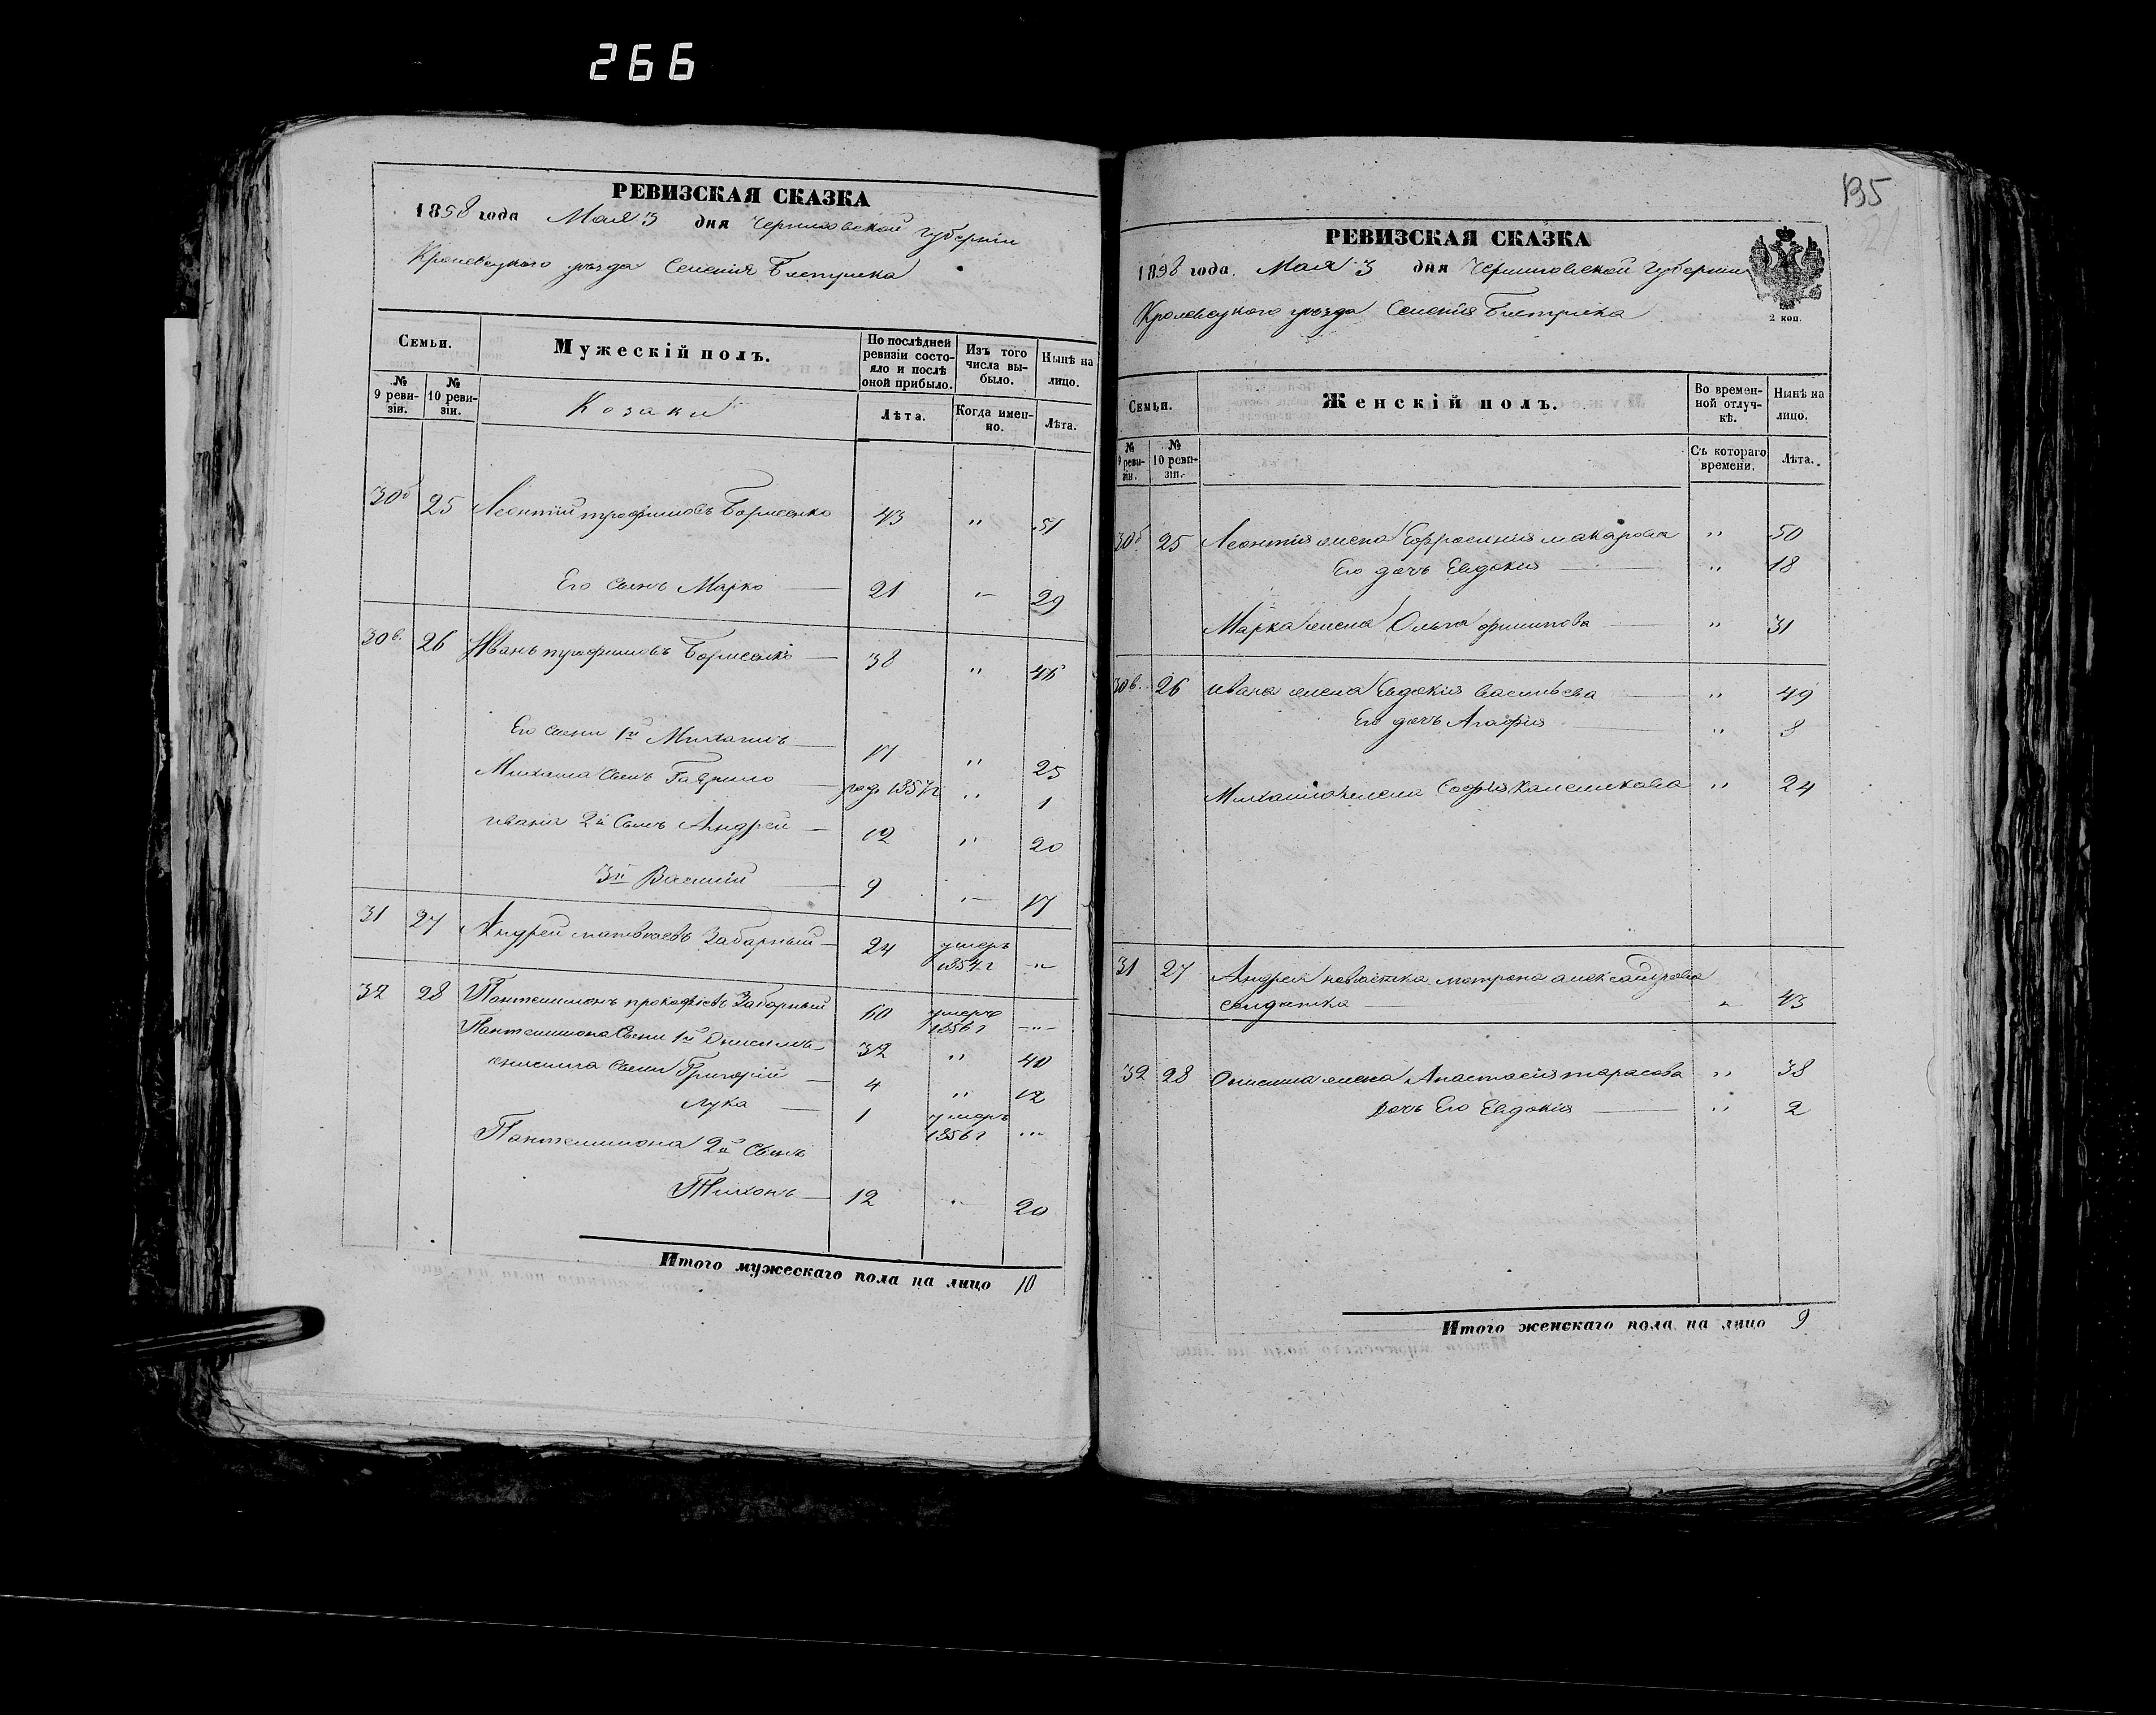 266
РЕВИЗСКАЯ СКАЗКА
1858 года Мая 3 дня Черниговской губернии
Кролевецкого уезда Селения Быстрика
Семьи. Мужескій полъ. По послѣдней ревизіи состояло и послѣ оной прибыло. Изъ того числа выбыло. Нынѣ на лицо.
№ 9 ревизіи. № 10 ревизіи. Козаки Лѣта. Когда именно. Лѣта.
30б 25 Леонтий трофимовъ Борисенко 43 " 51
Его сынъ Марко 21 " 29
30в. 26 Иванъ трофимовъ Борисенко 38 " 46
Его сыни 1й Михаилъ 17 " 25
Михаила сынъ Гаврило род. 1857 г " 1
ивана 2й сынъ Андрей 12 " 20
3й Василий 9 " 17
31 27 Андрей матвеевъ Забарный 24 умеръ 1854 г "
32 28 Пантелимонъ прокофиевъ Забарный 60 умеръ 1856 г "
Пантелимона сыни 1й Онисимъ 32 " 40
онисима сыни Григорий 4 " 12
Лука 1 умеръ 1856 г "
Пантелимона 2й сынъ
Тихонъ 12 " 20
Итого мужескаго пола на лицо 10
135
21
РЕВИЗСКАЯ СКАЗКА
1858 года Мая 3 дня Черниговской губернии
Кролевецкого уезда Селения Быстрика
2 коп.
Семьи. Женскій полъ. Во временной отлучкѣ. Нынѣ на лицо.
№ 9 ревизіи. № 10 ревизіи. Съ котораго времени. Лѣта.
30б 25 Леонтия жена Ефросиния макарова " 50
Его дочъ Евдокия " 18
Марка жена Ольга филипова " 31
30в. 26 ивана жена Евдокия васильева " 49
Его дочъ Агафия " 8
Михаила жена София " 24
31 27 Андрея невѣстка матрона александрова
солдатка " 43
32 28 Онисима жена Анастасия тарасова " 38
дочъ Его Евдокия " 2
Итого женскаго пола на лицо 9